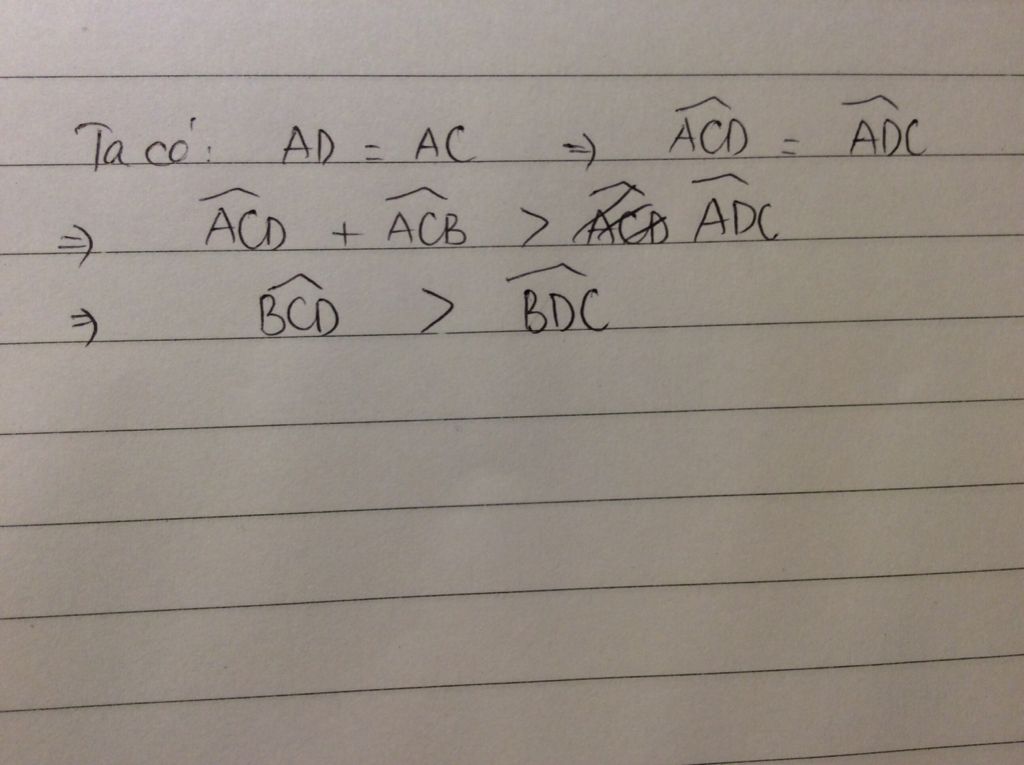 Ta có: AD = AC ⇒ \widehat{ACD} = \widehat{ADC}
⇒ \widehat{ACD} + \widehat{ACB} > \widehat{ADC}
⇒ \widehat{BCD} > \widehat{BDC}